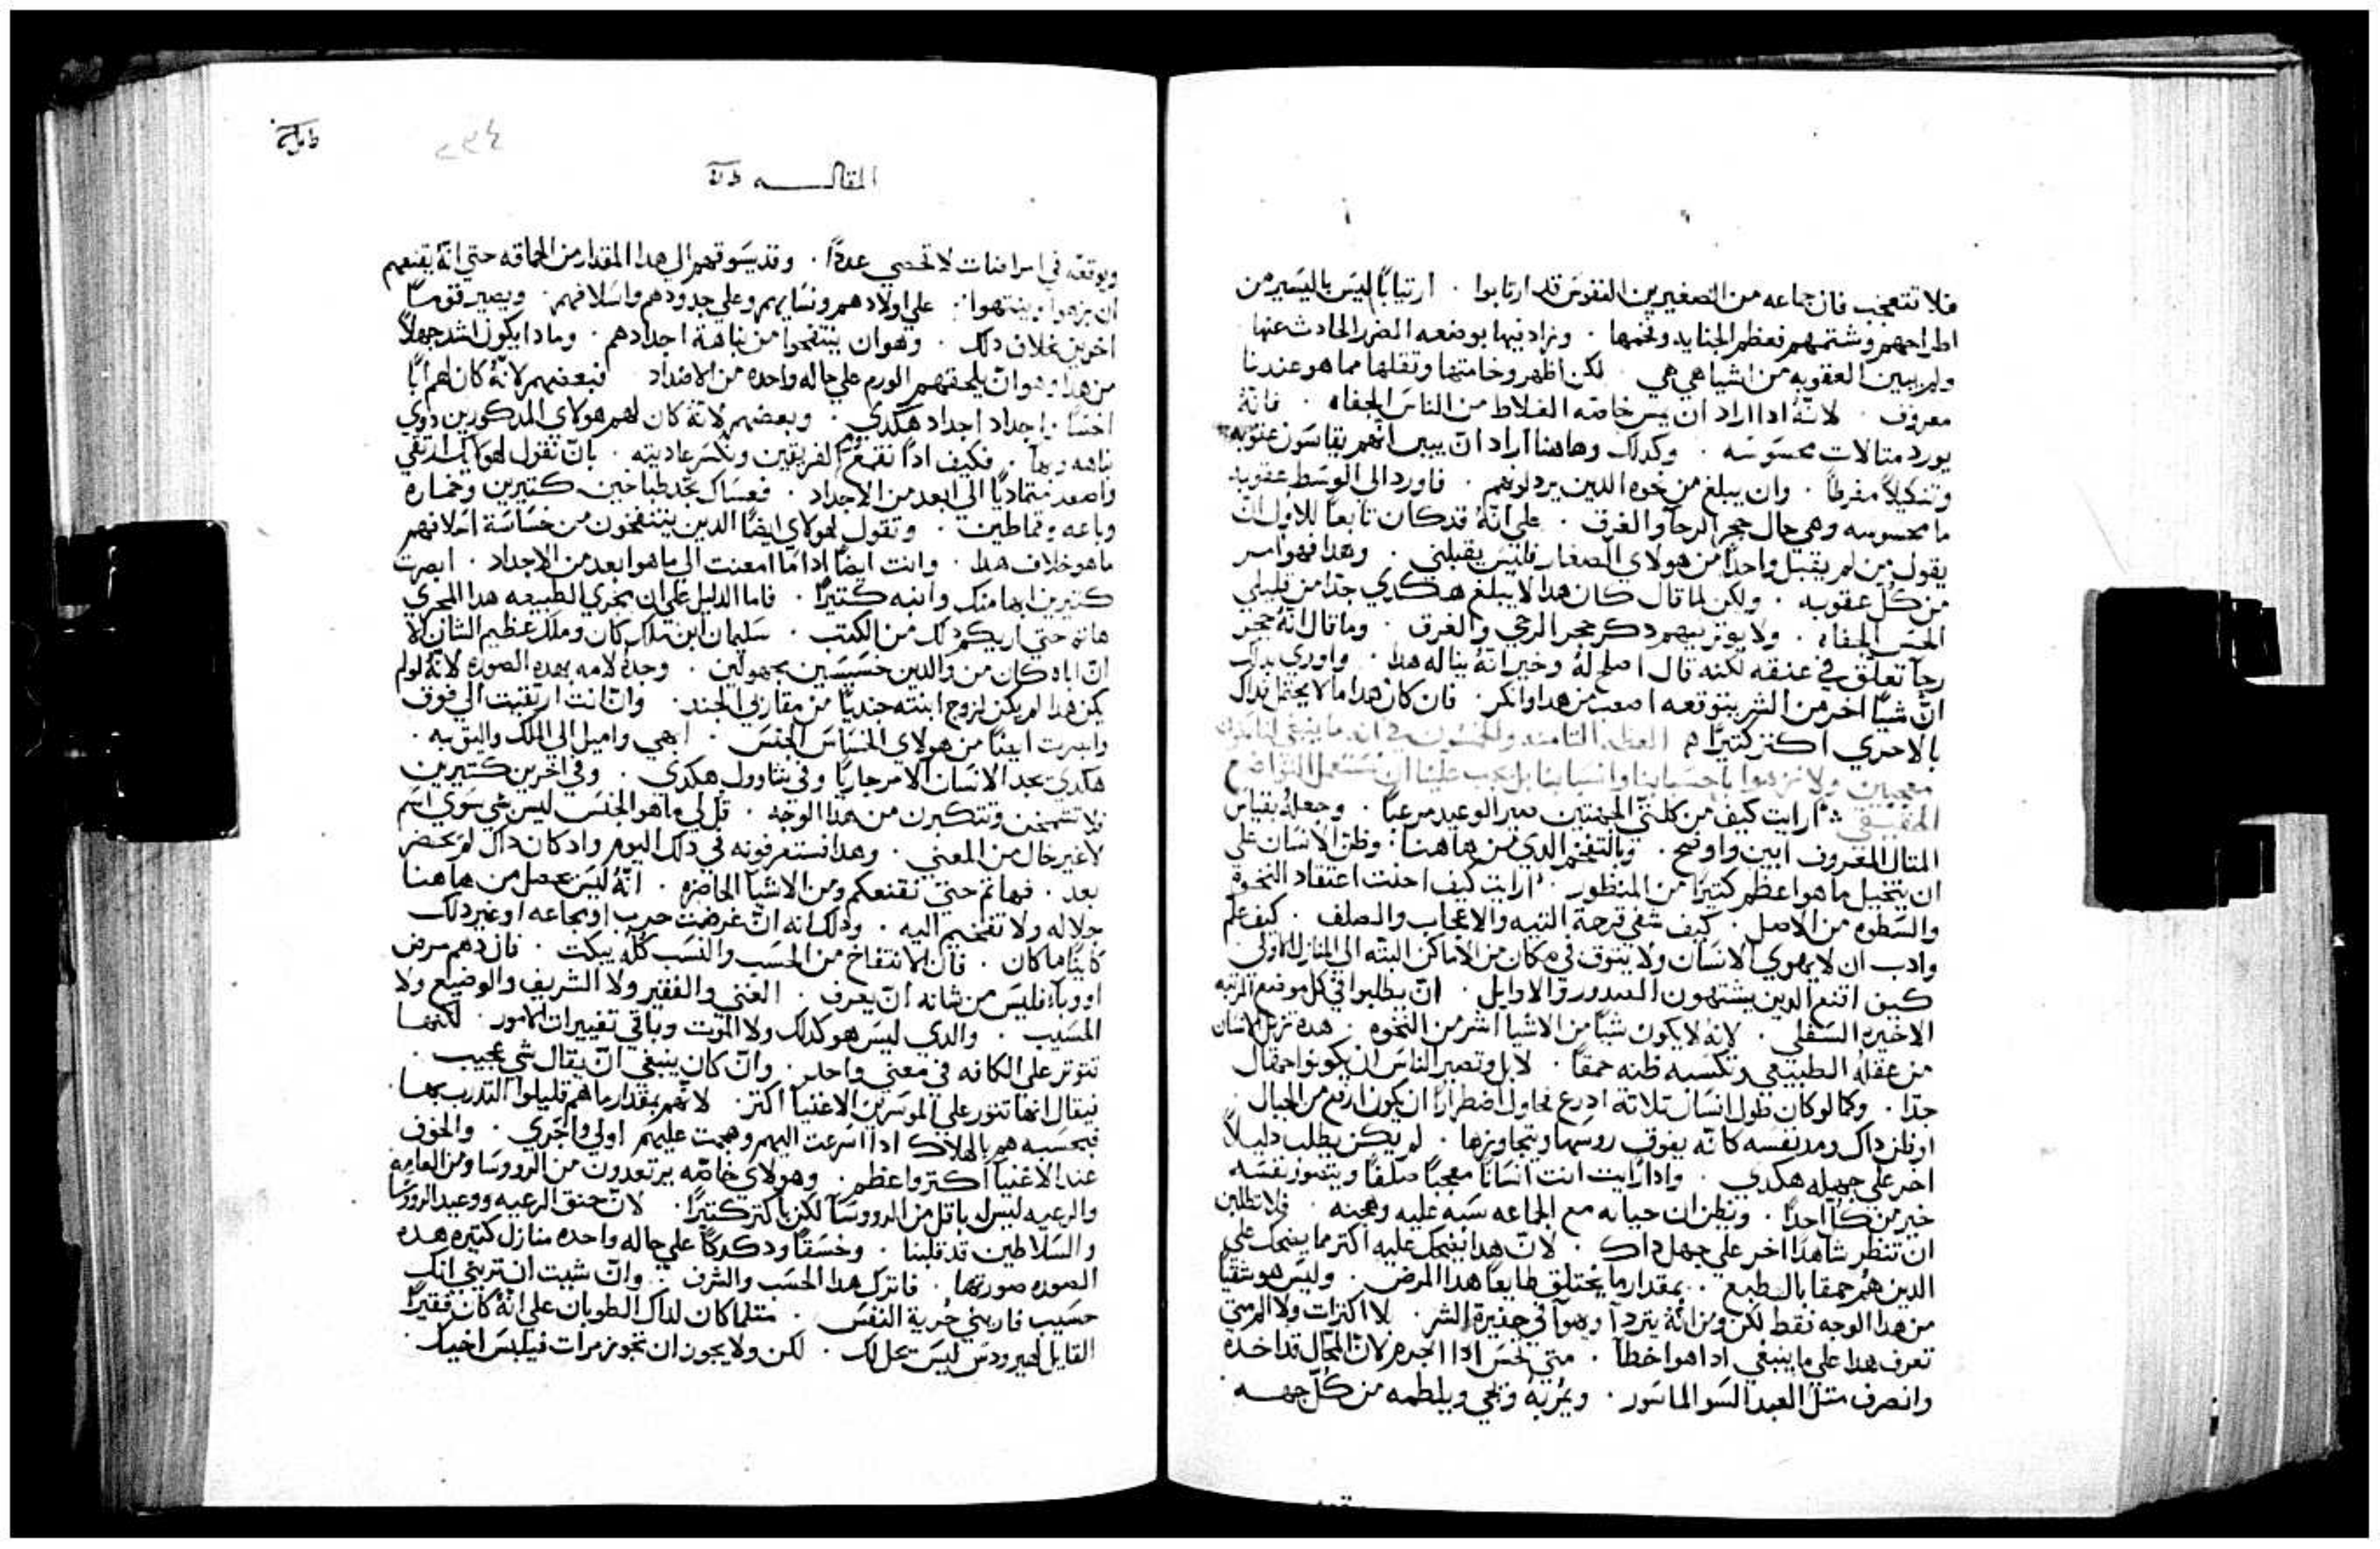 فلا تتعجب فان جماعه من الصغيرين النفوس قد ارتابوا . ارتيابًا ليس باليسير من
اطراحهم وشتمهم فعظم الجنايه وفخمها . وزاد فيها بوضعه الضرر الحادث عنها
ولم يبين العقوبه من اشيا هي هي . لكن اظهر وخامتها وثقلها مما هو عندنا
معروف . لانه ادا اراد ان يمس خاصه الغلاظ من الناس الجفاه . فانه
يورد مثالات محسوسه . وكدلك وهاهنا اراد ان يبين انهم يقاسون عقوبه
وتنكيلاً مفرطاً . وان يبلغ من نخوه الدين يردلونهم . فاورد الي الوسط عقوبه
ما محسوسه وهي حال حجر الرحا والغرق . علي انه قد كان تابعاً للاول ان
يقول من لم يقبل واحداً من هولاي الصغار فليس يقبلني . وهدا فهو امر
من كل عقوبه . ولكن لما قال كان هدا لا يبلغ هكدي جدا من قليلي
الحس الجفاه . ولا يوثر فيهم دكر حجر الرحي والغرق . وما قال انه حجر
رحا تعلق في عنقه لكنه قال اصلح له وخير انه يناله هدا . واوري بداك
ان شيًا اخر من الشر يتوقعه اصعب من هدا وانكر . فان كان هدا ما لا يحتمل فداك
بالاحري اكثر كثيرًا م العظه الثامنه والخمسون في انه ما ينبغي لنا نكون
معجبين ولا نزهوا باحسابنا وانسابنا بل يجب علينا ان نستعمل التواضع
الحقيقي ارايت كيف من كلتي الجهتين صير الوعيد مرعباً . وجعله بقياس
المثال المعروف ابين واوضح . وبالتفخم الدي من هاهنا وظن الانسان علي
ان يتخيل ما هو اعظم كثيرًا من المنظور . ارايت كيف احنث اعتقاد النخوة
والسطوه من الاصل . كيف شفي قرحة التيه والاعجاب والصلف . كيف علم
وادب ان لا يهوي الانسان ولا يتوق في مكان من الاماكن البته الي المنازل الاولي
كيف اقنع الدين يشتهون الصدور والاوايل . ان يطلبوا في كل موضع المرتبه
الاخيره السفلي . لانه لا يكون شيًا من الاشيا اشر من النخوه . هده تزيل الانسان
من عقله الطبيعي وتكسبه ظنه حمقاً . لا بل وتصير الناس ان يكونوا حمقا
جدا . وكما لو كان طول انسان تلاتة ادرع فحاول اضطرارًا ان يكون ارفع من الجبال .
او ظن داك ومد نفسه كانه يفوق روسها ويتجاوزها . لم يكن يطلب دليلاً
اخر علي جهله هكدي . وادا رايت انت انسانا معجباً صلفاً ويتصور نفسه
خير من كل احدًا . ويظن ان حياته مع الجماعه سبه عليه وهجنه . فلا تطلبن
ان تنظر شاهدًا اخر علي جهل داك . لان هدا يضحك عليه اكثر مما يضحك علي
الدين هم حمقا بالطبع . بمقدار ما يختلق طايعاً هدا المرض . وليس هو شقيًا
من هدا الوجه فقط لكن ومن انه يتردا ويهوا في حفيرة الشر . لا اكتراث ولا
تعرف هدا علي ما ينبغي ادا هو اخطا . متي يحس ادا اجرم لان المحال قد اخده
وانصرف مثل العبد السو الماسور . ويمر به ويجي ويلطمه من كل جهه

٢٣٤
المقالـــــه
ويوقعه في امراضات لا تحصي عددًا . وقد يسوقهم الي هدا المقدار من الحماقه حتي انه يقنعهم
ان يزهوا ويتيهوا . علي اولادهم ونسايهم وعلي جدودهم واسلافهم . ويصير قومًا
اخرين بخلاف دلك . وهو ان ينتفخوا من نباهة اجدادهم . وما دا يكون اشد جهلاً
من هدا وهو ان يلحقهم الورم علي حاله واحده من الاضداد فبعضهم لانه كان لهم ابا
اخسا . اجداد اجداد هكدي . وبعضهم لانه كان لهم هولاي المدكورين دوي
نباهه وبها . فكيف ادًا نقمع الفريقين ونكسر عاديته . بان نقول لهولاي ارتقي
واصعد متماديًا الي ابعد من الاجداد . فعساك تجد طباخين كثيرين وخماره
وباعه وقماطين . وتقول لهولاي ايضاً الدين ينتفخون من خساسة اسلافهم
ما هو خلاف هدا . وانت ايضًا ادا ما امعنت الي ما هو ابعد من الاجداد . ابصرت
كثيرين ابها منك وانبه كثيرًا . فاما الدليل علي ان تجري الطبيعه هدا المجري
هاته حتي اريكم دلك من الكتب . سليمان ابن ملك كان وملك عظيم الشان الا
ان اباه كان من والدين خسيسين مجهولين . وجده لامه بهده الصوره لانه لو لم
يكن هدا لم يكن لزوج ابنته جنديًا من مقاربي الجند . وان انت ارتقيت الي فوق
وابصرت ايضًا من هولاي الخساس الجنس . ابهي واميل الي الملك واليق به .
هكدي تجد الانسان الامر جاريًا وفي شاوول هكدي . وفي اخرين كثيرين
فلا تشمخن وتتكبرن من هدا الوجه . قل لي ما هو الجنس ليس شي سوي اسم
لا غير خال من المعني . وهدا فستعرفونه في دلك اليوم واد كان داك لم يحضر
بعد . فهاتم حتي نقنعكم ومن الاشيا الحاضره . انه ليس يحصل من هاهنا
جلاله ولا تفخيم اليه . ودلك انه ان عرضت حرب او مجاعه او غير دلك
كاينًا ما كان . فان الانتفاخ من الحسب والنسب كله يبكت . فان دهم مرض
او وباء فليس من شانه ان يعرف . الغني والفقير ولا الشريف والوضيع ولا
المسيب . والدي ليس هو كدلك ولا الموت وباقي تغييرات الامور . لكنها
تتوتر علي الكافه في معني واحد . وان كان ينبغي ان يقال شي عجيب .
فيقال انها تثور علي الموسرين الاغنيا اكثر لانهم بمقدار ما هم قليلوا التدرب بها .
فبحسبه هم بالهلاك ادا اسرعت اليهم وهجمت عليهم اولي واحري . والخوف
عند الاغنيا اكثر واعظم . وهولاي خاصه يرتعدون من الرووسا ومن العامه
والرعيه ليس باقل من الرووسا لكن باكثر كثيرًا . لان حنق الرعيه ووعيد الرووسا
والسلاطين قد قلبنا . وخسفا ودكدكا علي حاله واحده منازل كثيره هده
الصوره صورتها . فاترك هدا الحسب والشرف . وان شيت ان تريني انك
حسيب فاريني حرية النفس . مثلما كان لداك الطوبان علي انه كان فقيرًا
القايل لهيرودس ليس تحل لك . لكن ولا يجوز ان تجوز مرات فيلبس اخيك .